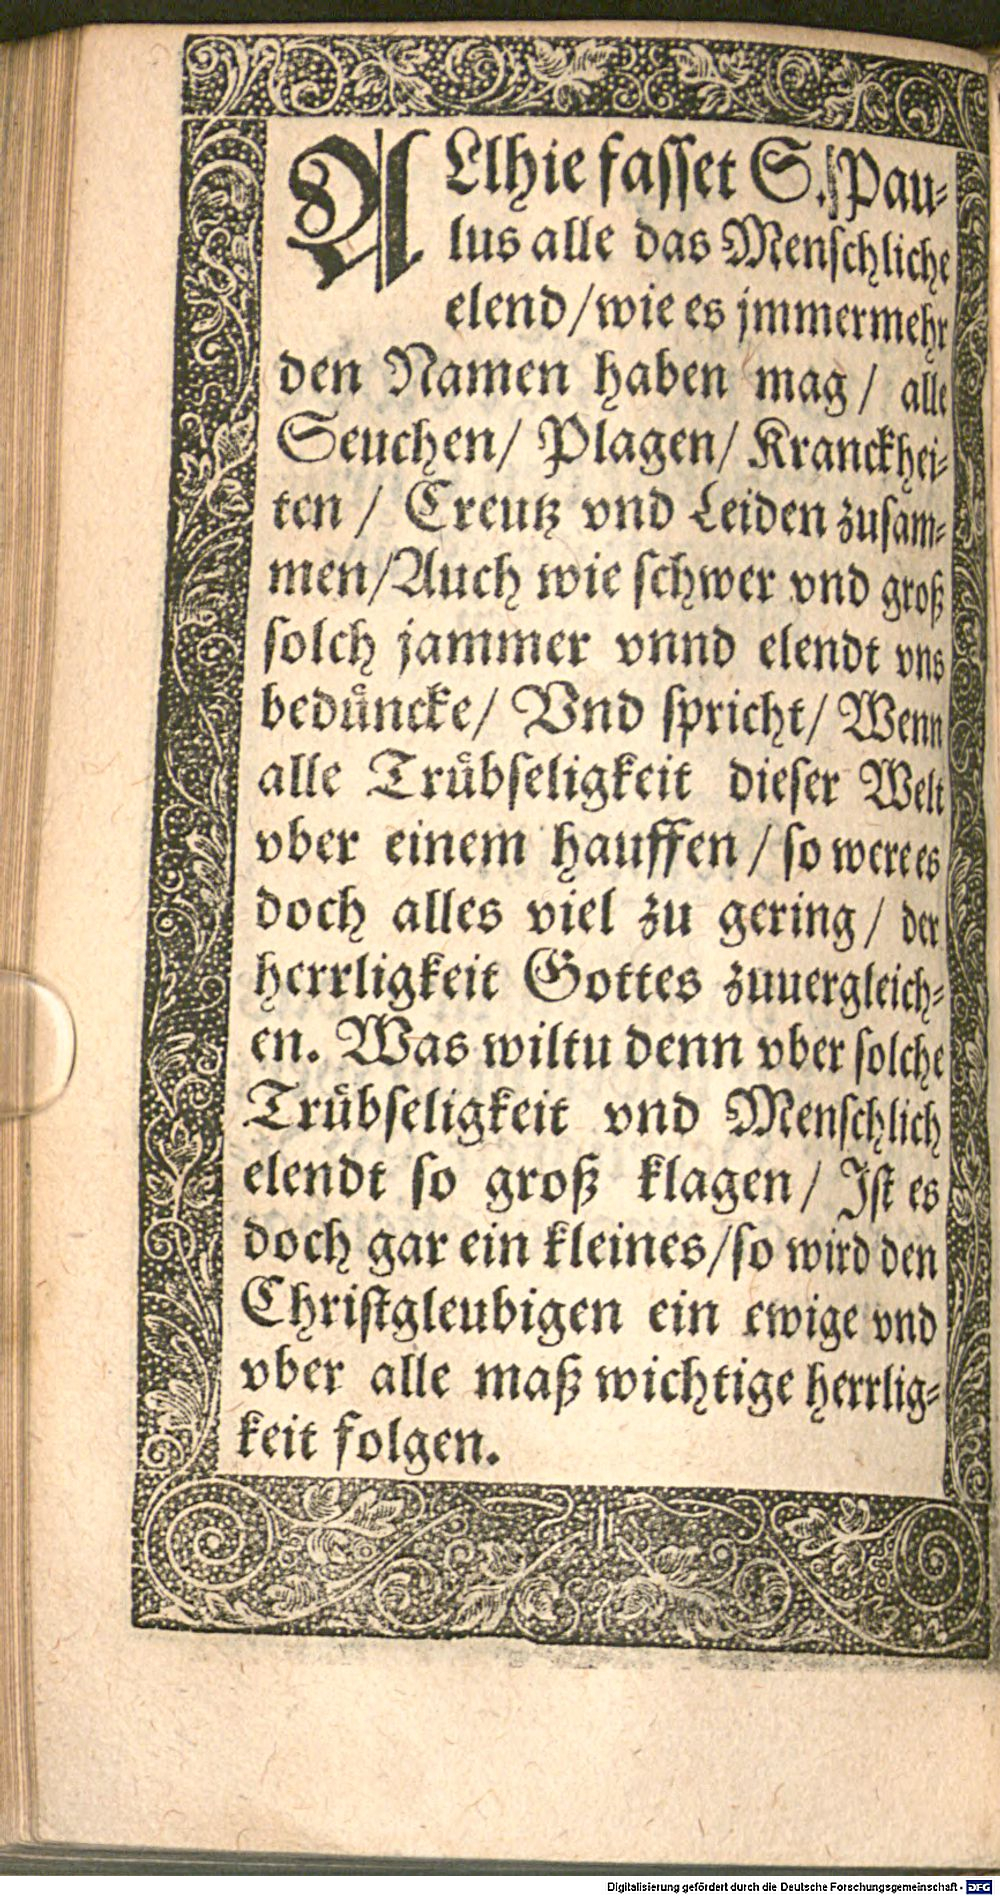 ALlhie fasset S. Pau-
lus alle das Menschliche
elend/wie es jmmermehr
den Namen haben mag/ alle
Seuchen/ Plagen/ Kranckhei-
ten / Creutz vnd Leiden zusam-
men/Auch wie schwer vnd groß
solch jammer vnnd elendt vns
bedüncke/ Vnd spricht/ Wenn
alle Trübseligkeit dieser Welt
vber einem hauffen / so were es
doch alles viel zu gering/ der
herrligkeit Gottes zuuergleich-
en. Was wiltu denn vber solche
Trübseligkeit vnd Menschlich
elendt so groß klagen/ Ist es
doch gar ein kleines/so wird den
Christgleubigen ein ewige vnd
vber alle maß wichtige herrlig-
keit folgen.
Digitalisierung gefördert durch die Deutsche Forschungsgemeinschaft - DFG